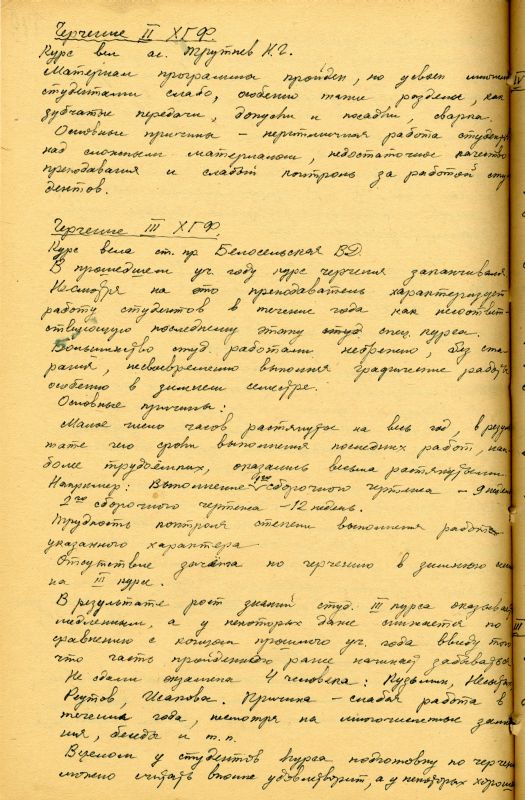 Черчение II ХГФ.
Курс вел ас. Трутнев Н.Г.
Материал программы пройден, но усвоен многими
студентами слабо, особенно такие разделы, как
зубчатые передачи, допуски и посадки, сварка.
Основные причины – неритмичная работа студентов
над сложным материалом, недостаточное качество
преподавания и слабый контроль за работой сту
дентов.
Черчение III ХГФ.
Курс вела ст. пр Белосельская В.Д.
В прошедшем уч. году курс черчения заканчивался
Несмотря на это преподаватель характеризует
работу студентов в течение года как несоответ-
ствующую последнему этапу студ. спец. курса.
Большинство студ. работали небрежно, без ста-
рания, несвоевременно выполняя графические работы
особенно в зимнем семестре.
Основные причины:
Малое число часов растянутое на весь год, в резуль
тате чего сроки выполнения последних работ, наи
более трудоемких, оказались весьма растянутыми.
Например: Выполнение 1го сборочного чертежа – 9 недель
2го сборочного чертежа – 12 недель.
Трудность контроля степени выполнения работ
указанного характера
Отсутствие зачёта по черчению в зимнюю
на III курсе.
В результате рост знаний студ. III курса оказывается
медленным, а у некоторых даже снижается по
сравнению с концом прошлого уч. года ввиду того
что часть пройденного ранее начинает забываться
Не сдали экзамена 4 человека: Кузьмин,
Реутов, Исакова. Причина – слабая работа в
течение года, несмотря на многочисленные
ния, беседы и т.п.
В целом у студентов курса подготовку по черчению
можно считать вполне удовлетворит, а у некоторых хорошей
IV
III